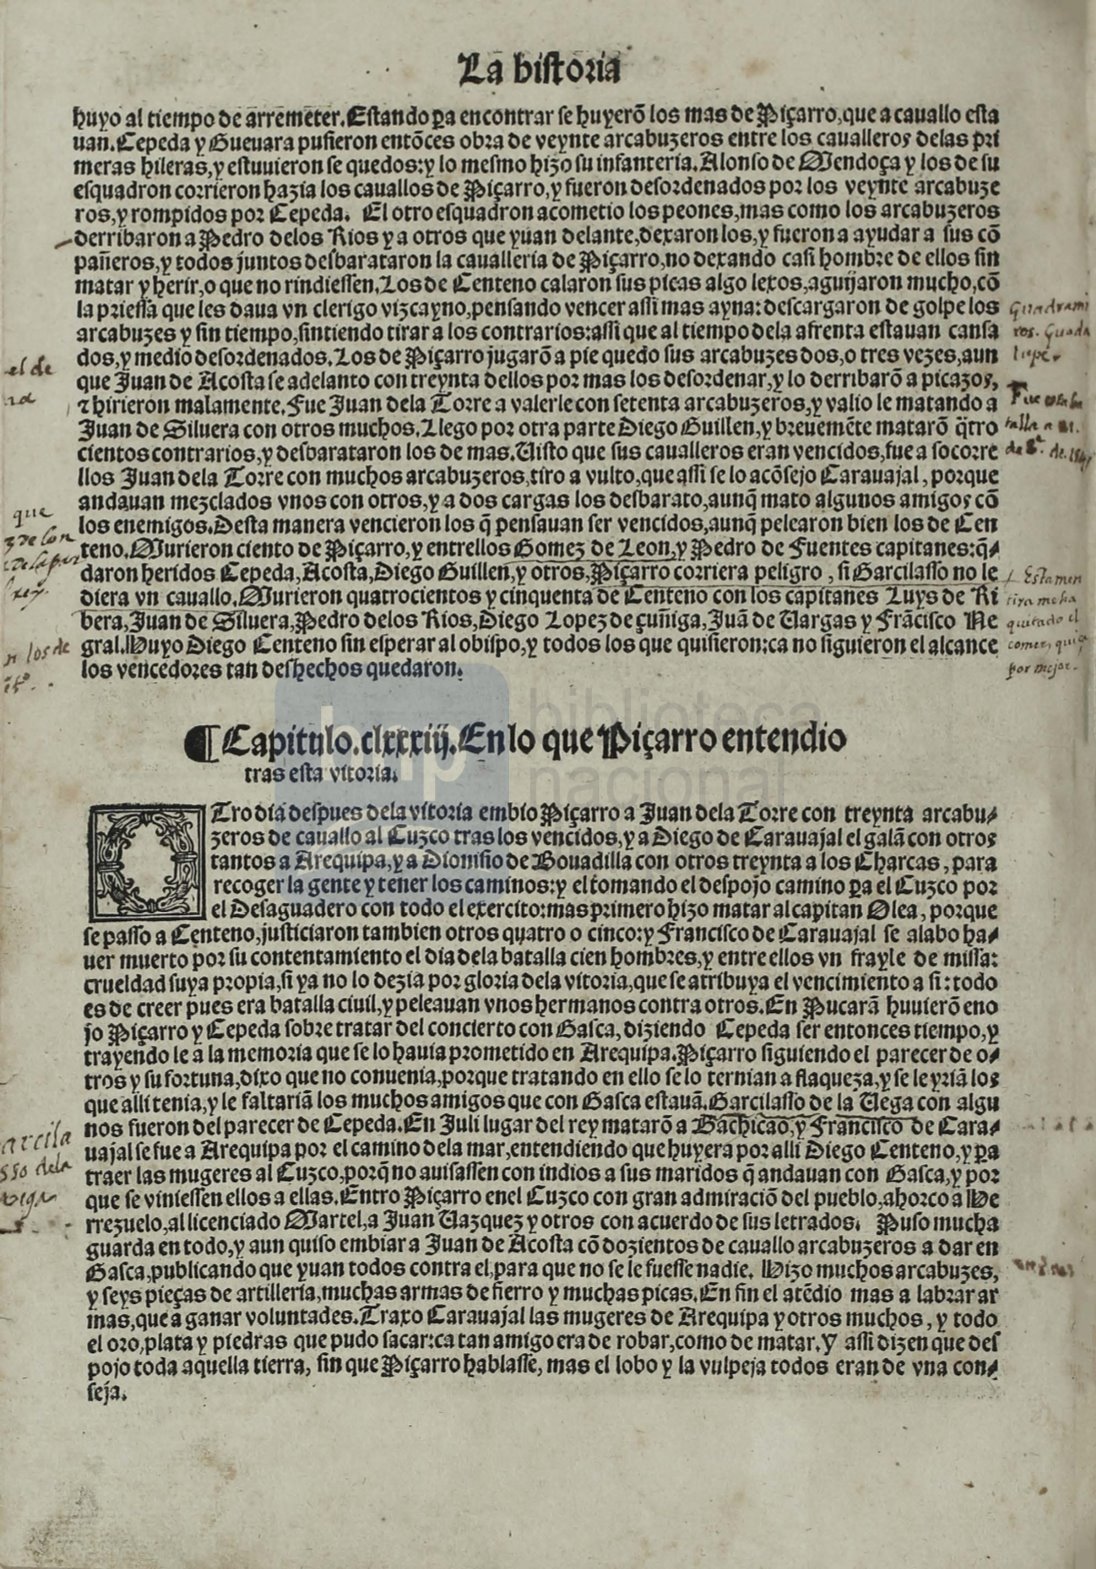 La historia
huyo al tiempo de arremeter. Estando p̃a encontrar se huyerõ los mas de Piçarro, que a cauallo esta
uan. Cepeda y Gueuara pusieron entõces obra de veynte arcabuzeros entre los caualleros delas pri
meras hileras, y estuuieron se quedos: y lo mesmo hizo su infanteria. Alonso de Mendoça y los de su
esquadron corrieron hazia los cauallos de Piçarro, y fueron desordenados por los veynte arcabuze
ros, y rompidos por Cepeda. El otro esquadron acometio los peones, mas como los arcabuzeros
derribaron a Pedro delos Rios y a otros que yuan delante, dexaron los, y fueron a ayudar a sus cõ
pañeros, y todos juntos desbarataron la caualleria de Piçarro, no dexando casi hombre de ellos sin
matar y herir, o que no rindiessen. Los de Centeno calaron sus picas algo lexos, aguijaron mucho, cõ
la priessa que les daua vn clerigo vizcayno, pensando vencer assi mas ayna: descargaron de golpe los
arcabuzes y sin tiempo, sintiendo tirar a los contrarios: assi que al tiempo dela afrenta estauan cansa
dos, y medio desordenados. Los de Piçarro jugarõ a pie quedo sus arcabuzes dos, o tres vezes, aun
que Juan de Acosta se adelanto con treynta dellos por mas los desordenar, y lo derribarõ a picazos,
⁊ hirieron malamente. Fue Juan dela Torre a valerle con setenta arcabuzeros, y valio le matando a
Juan de Siluera con otros muchos. Llego por otra parte Diego Guillen, y breuemẽte matarõ q̃tro
cientos contrarios, y desbarataron los de mas. Uisto que sus caualleros eran vencidos, fue a socorre
llos Juan dela Torre con muchos arcabuzeros, tiro a vulto, que assi se lo acõsejo Carauajal, porque
andauan mezclados vnos con otros, y a dos cargas los desbarato, aunq̃ mato algunos amigos cõ
los enemigos. Desta manera vencieron los q̃ pensauan ser vencidos, aunq̃ pelearon bien los de Cen
teno. Murieron ciento de Piçarro, y entrellos Gomez de Leon, y Pedro de Fuentes capitanes: q̃-
daron heridos Cepeda, Acosta, Diego Guillen, y otros, Piçarro corriera peligro, si Garcilasso no le
diera vn cauallo. Murieron quatrocientos y cinquenta de Centeno con los capitanes Luys de Ri
bera, Juan de Siluera, Pedro delos Rios, Diego Lopez de çuñiga, Juã de Uargas y Frãcisco Ne
gral. Huyo Diego Centeno sin esperar al obispo, y todos los que quisieron: ca no siguieron el alcance
los vencedores tan deshechos quedaron.
¶ Capitulo. clxxxiij. En lo que Piçarro entendio
tras esta vitoria.
OTro dia despues dela vitoria embio Piçarro a Juan dela Torre con treynta arcabu-
zeros de cauallo al Cuzco tras los vencidos, y a Diego de Carauajal el galã con otros
tantos a Arequipa, y a Dionisio de Bouadilla con otros treynta a los Charcas, para
recoger la gente y tener los caminos: y el tomando el despojo camino p̃a el Cuzco por
el Desaguadero con todo el exercito: mas primero hizo matar al capitan Olea, porque
se passo a Centeno, justiciaron tambien otros quatro o cinco: y Francisco de Carauajal se alabo ha-
uer muerto por su contentamiento el dia dela batalla cien hombres, y entre ellos vn frayle de missa:
crueldad suya propia, si ya no lo dezia por gloria dela vitoria, que se atribuya el vencimiento a si: todo
es de creer pues era batalla ciuil, y peleauan vnos hermanos contra otros. En Pucarã huuierõ eno
jo Piçarro y Cepeda sobre tratar del concierto con Gasca, diziendo Cepeda ser entonces tiempo, y
trayendo le a la memoria que se lo hauia prometido en Arequipa. Piçarro siguiendo el parecer de o-
tros y su fortuna, dixo que no conuenia, porque tratando en ello se lo ternian a flaqueza, y se le yriã los
que alli tenia, y le faltariã los muchos amigos que con Gasca estauã. Garcilasso de la Uega con algu
nos fueron del parecer de Cepeda. En Juli lugar del rey matarõ a Bachicao, y Francisco de Cara-
uajal se fue a Arequipa por el camino dela mar, entendiendo que huyera por alli Diego Centeno, y p̃a
traer las mugeres al Cuzco, porq̃ no auisassen con indios a sus maridos q̃ andauan con Gasca, y por
que se viniessen ellos a ellas. Entro Piçarro enel Cuzco con gran admiraciõ del pueblo, ahorco a He
rrezuelo, al licenciado Martel, a Juan Uazquez y otros con acuerdo de sus letrados. Puso mucha
guarda en todo, y aun quiso embiar a Juan de Acosta cõ dozientos de cauallo arcabuzeros a dar en
Gasca, publicando que yuan todos contra el, para que no se le fuesse nadie. Hizo muchos arcabuzes,
y seys pieças de artilleria, muchas armas de fierro y muchas picas. En fin el atẽdio mas a labrar ar
mas, que a ganar voluntades. Traxo Carauajal las mugeres de Arequipa y otros muchos, y todo
el oro, plata y piedras que pudo sacar: ca tan amigo era de robar, como de matar. Y assi dizen que des
pojo toda aquella tierra, sin que Piçarro hablasse, mas el lobo y la vulpeja todos eran de vna con-
seja.
Guadrami
ros. Guada
lupe.
Fue
talla a
de
Esta men
tira me ha
quitado el
comer, 
por mejor.
el de
que
n los de
arcila
sso dela
bnp biblioteca
nacional